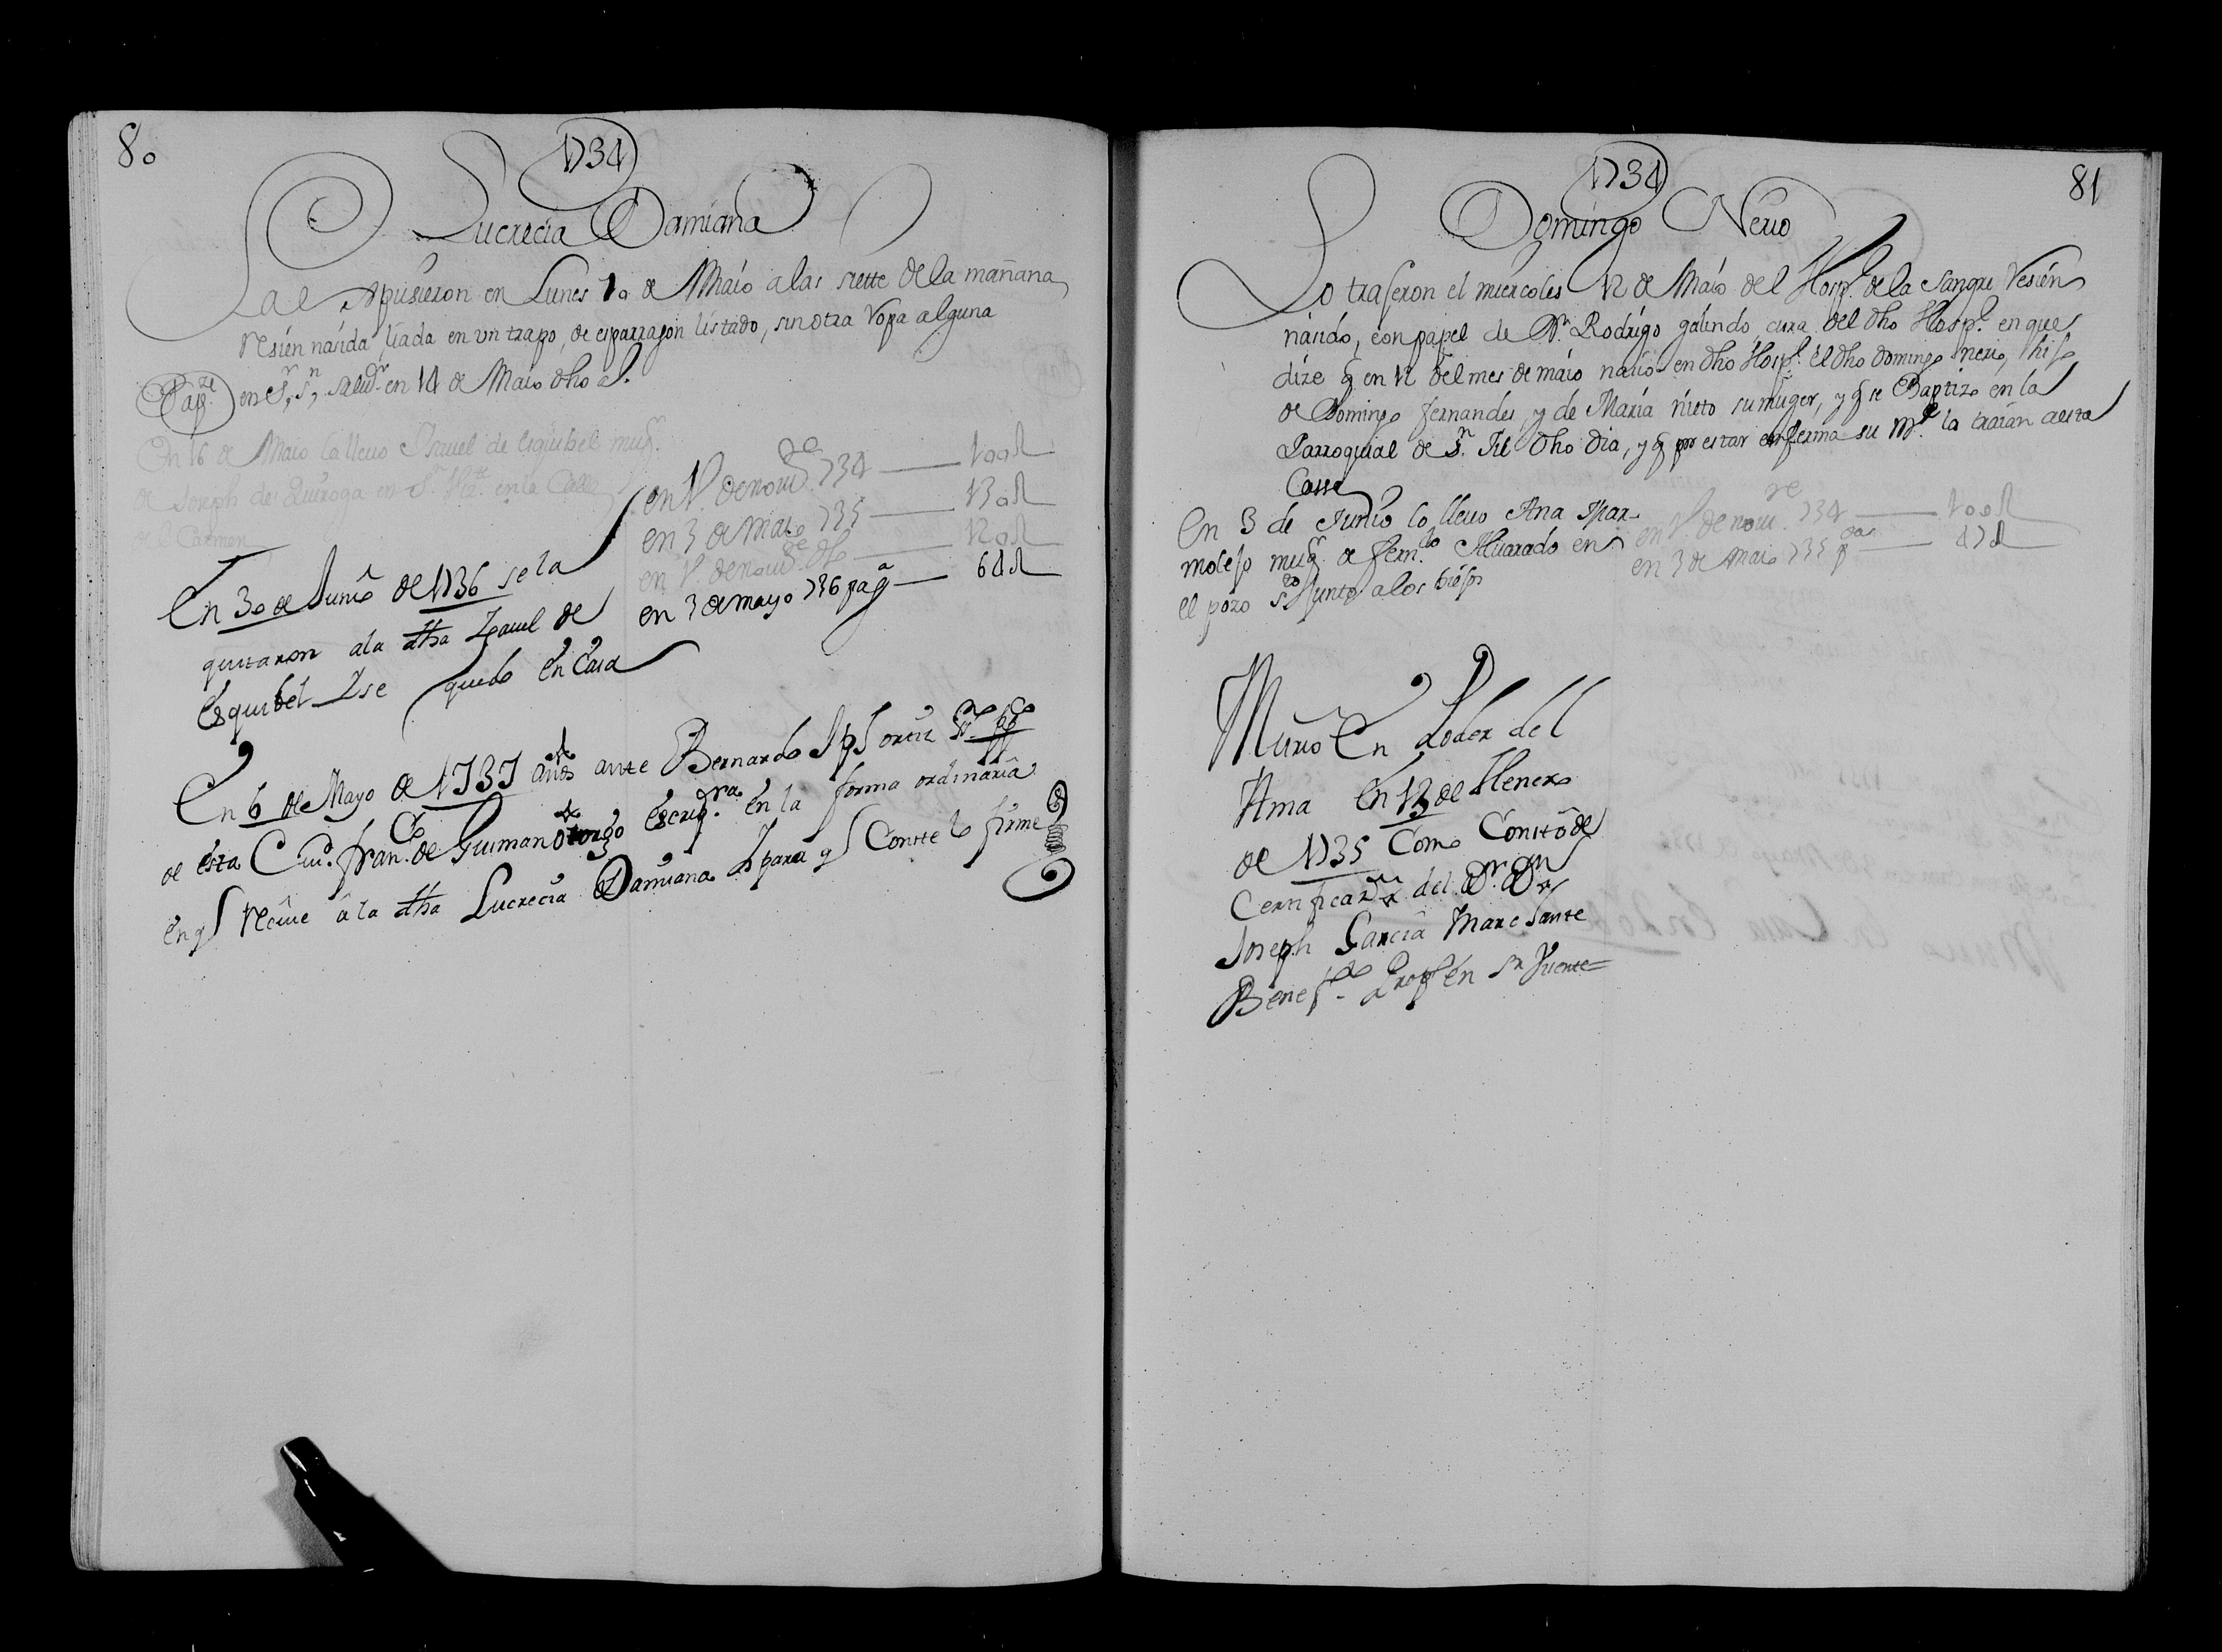 80
1734
Lucrecia Damiana
La expusieron en Lunes 10 de Maio a las siette de la mañana
resien násida liada en vn trapo, de esparragon listado, sin otra ropa alguna
Bapᶻᵉ en Sʳ, Sⁿ, Saluʳ en 14 de Maio dho a.
En 16 de Maio la lleuo Isauel de esquibel mugʳ
de Joseph de Quiroga en Sⁿ Vᵗᵉ en la Calle
del Carmen
en 1º de nouᵉ 734 — 100R
en 3 de Maio 735 — 130R
en 1º de nouᵉ dho — 120R
en 3 de mayo 736 pagᵃ — 64R
En 30 de Junio de 1736 se la
quitaron a la dha Izauel de
Esquibel Ise quedo en Casa
En 6 de Mayo de 1737 años ante Bernardo Jph ortiz
de esta Ciuᵈ. franᶜᵒ de Guiman otorgo escripʳᵃ. en la forma ordinaria
en q Reciue â la dha Lucrecia Damiana I para q Conste lo firme
81
1734
Domingo Nerio
Lo trajeron el miercoles 12 de Maio del Hospˡ de la Sangre Resien
násido, con papel de Dⁿ. Rodrigo galindo cura del dho Hospˡ. en que
dize q̃ en 12 del mes de máio naśio en dho Hospˡ. el dho Domingo nerio, hijo
de Domingo fernandes, y de Maria nieto su muger, y q̃ se Baptizo en la
Parroquial de Sⁿ. Jil dho dia, y q̃ por estar enferma su Mᵉ la traian a esta
Cassa
En 3 de Junio lo lleuo Ana Mar-
molejo mugʳ de Fernᵈᵒ Aluarado en
el pozo Sᵗᵒ junto a los biejos
en 1º de nouᵉ 734 — 100R
en 3 de Maio 735 pᵃᵍᵃ — 47R
Murio en Poder del
Ama En 12 de Henero
de 1735 Como Constó de
Certificaᶻⁿ del Dʳ. Dⁿ
Joseph Garcia Marc Sante
Benefᵈᵒ Propᵒ en Sⁿ Vicente=